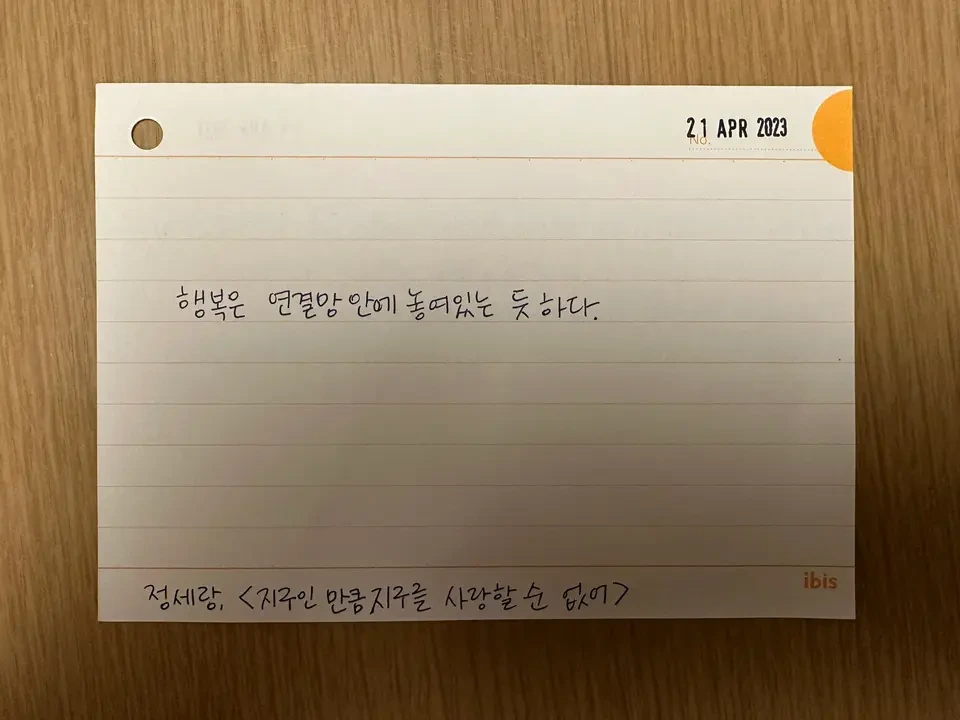 21 APR 2023
No.
행복은 연결망 안에 놓여있는 듯 하다.
ibis
정세랑, <지구인 만큼 지구를 사랑할 순 없어>